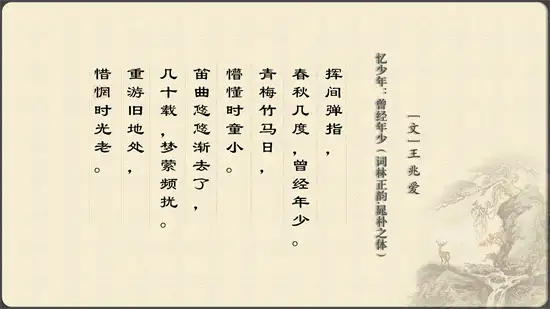 忆少年：曾经年少（词林正韵.晁朴之体）
|文|王兆爱
挥间弹指，
春秋几度，曾经年少。
青梅竹马日，
懵懂时童小。
笛曲悠悠渐去了，
几十载，梦萦频扰。
重游旧地处，
惜惘时光老。